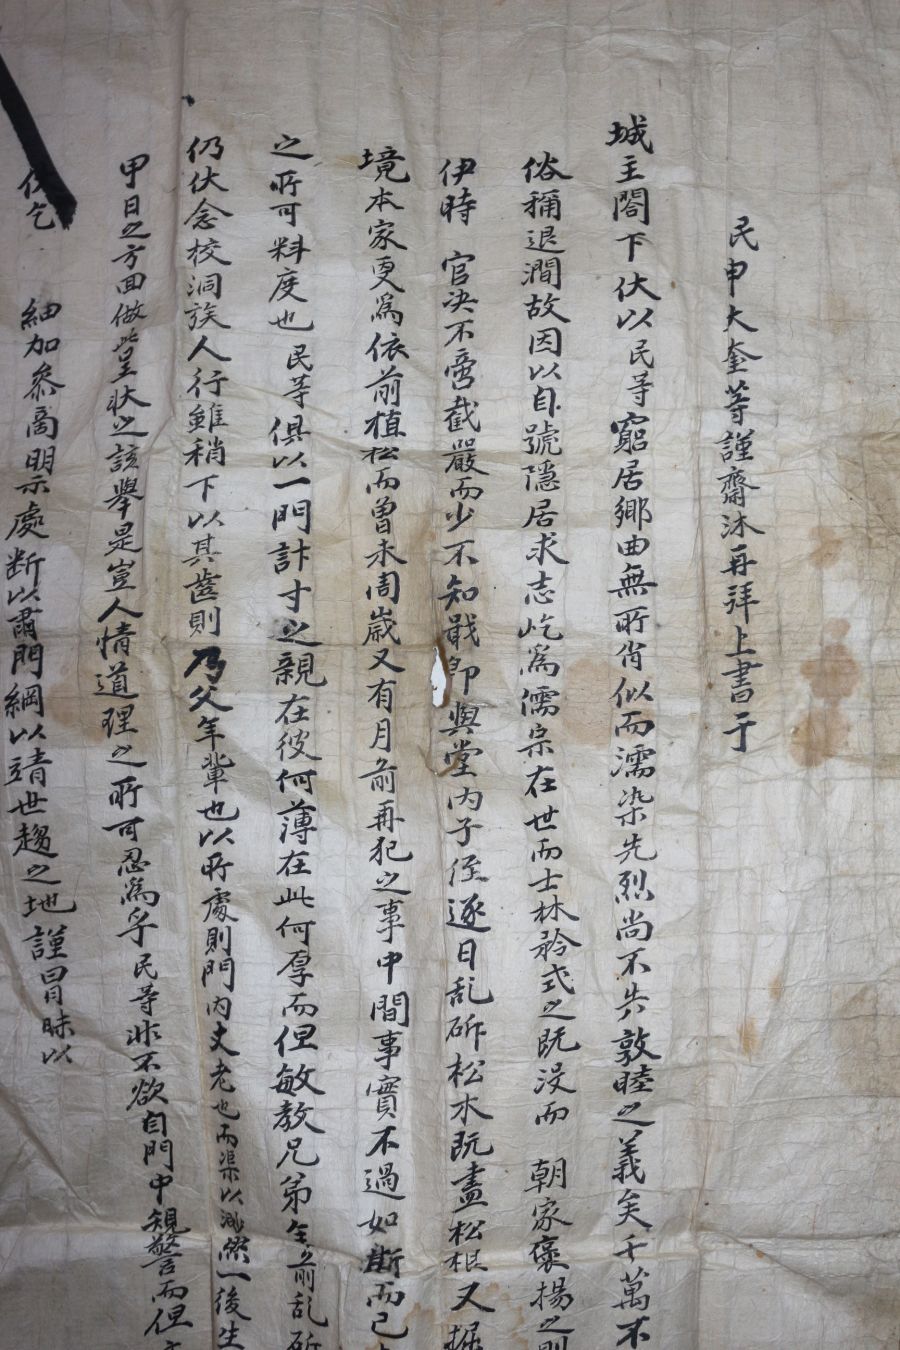 民申大奎等謹齋沐再拜上書于
城主閤下伏以民等窮居鄉曲無所肖似而濡染先烈尚不失敦睦之義矣千萬不
俗稱退澗故因以自號隱居求志屹爲儒宗在世而士林矜式之既沒而 朝家褒揚之則
伊時 官決不啻截嚴而少不知戢卽與堂內子侄逐日乱斫松木既盡松根又掘
境本家更爲依前植松而曾未周歲又有月前再犯之事中間事實不過如斯而已
之所可料度也民等俱以一門計寸之親在彼何薄在此何厚而但敏教兄弟前乱斫
仍伏念校洞族人行雖稍下以其齒則乃父年輩也以所處則門內丈老也而渠以渺然一後生
甲日之方面做此呈狀之該舉是豈人情道理之所可忍爲乎民等非不欲自門中規警而但
伏乞 細加叅商明示處断以肅門綱以靖世趨之地謹冒昧以